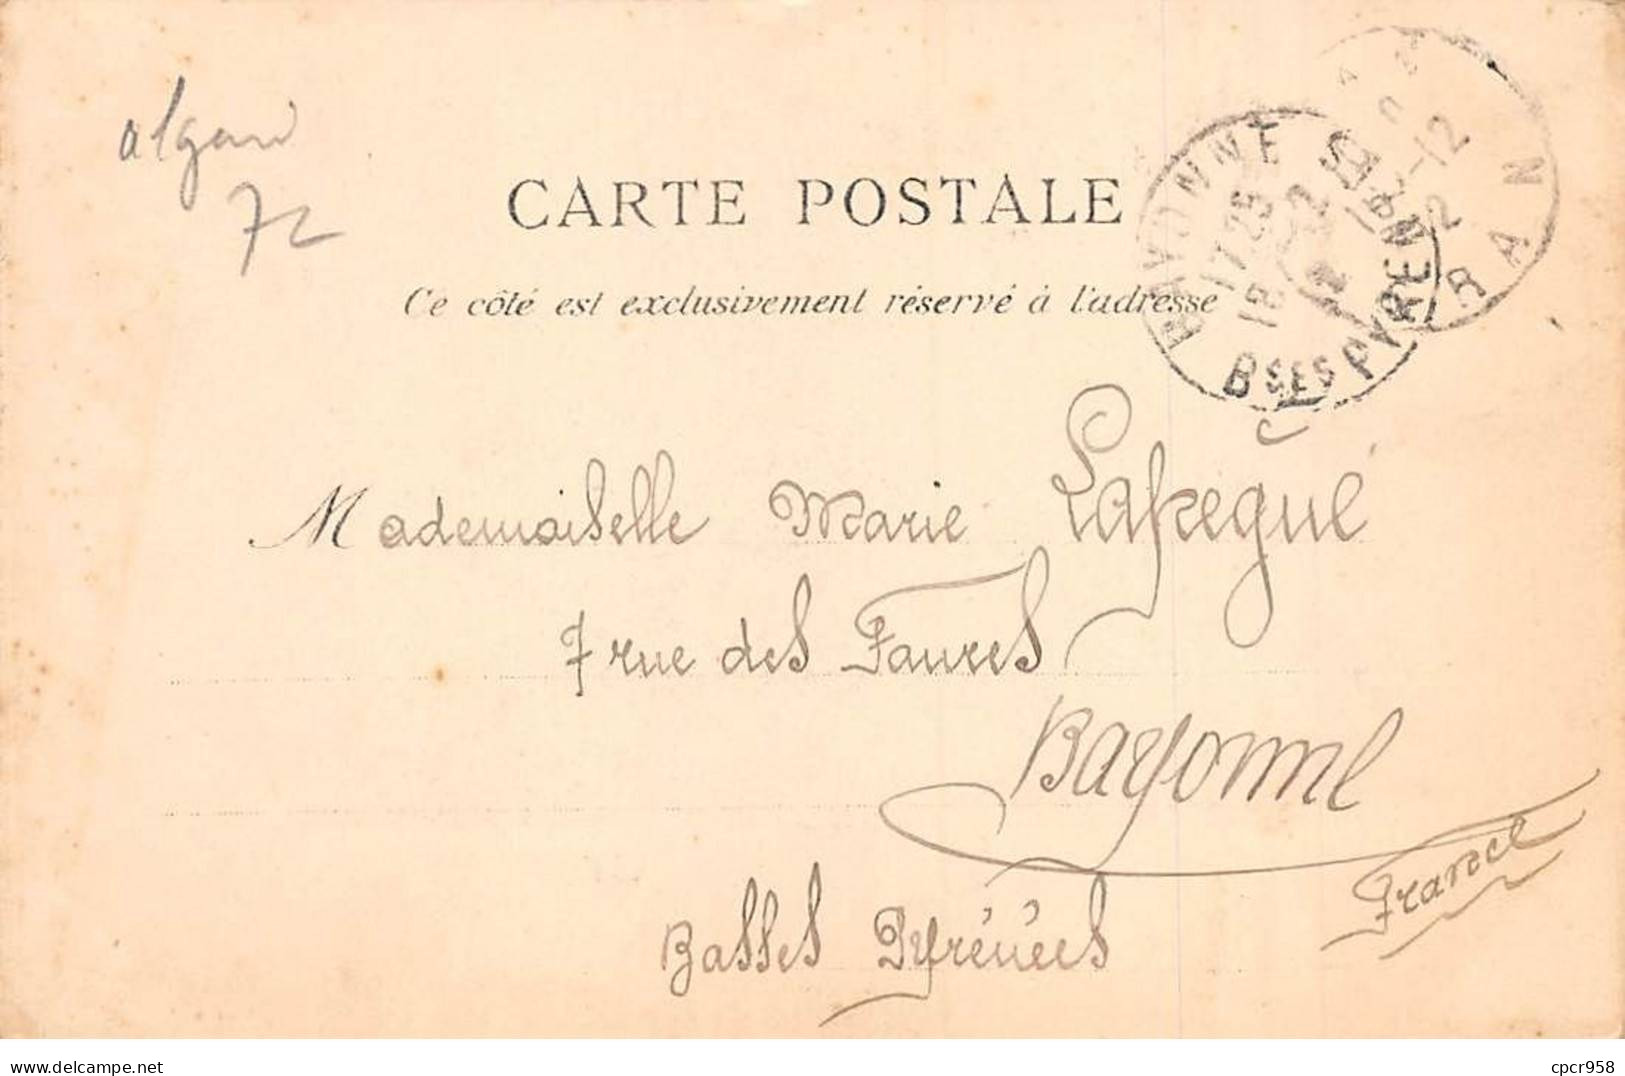 CARTE POSTALE
Ce côté est exclusivement réservé à l'adresse
BAYONNE
17 25
18
Bses PYREN
-12
RAN
72
Mademoiselle Marie Lafregué
7 rue des Faures
Bayonne
France
Basses Pyrénées
www.delcampe.net
cpcr958